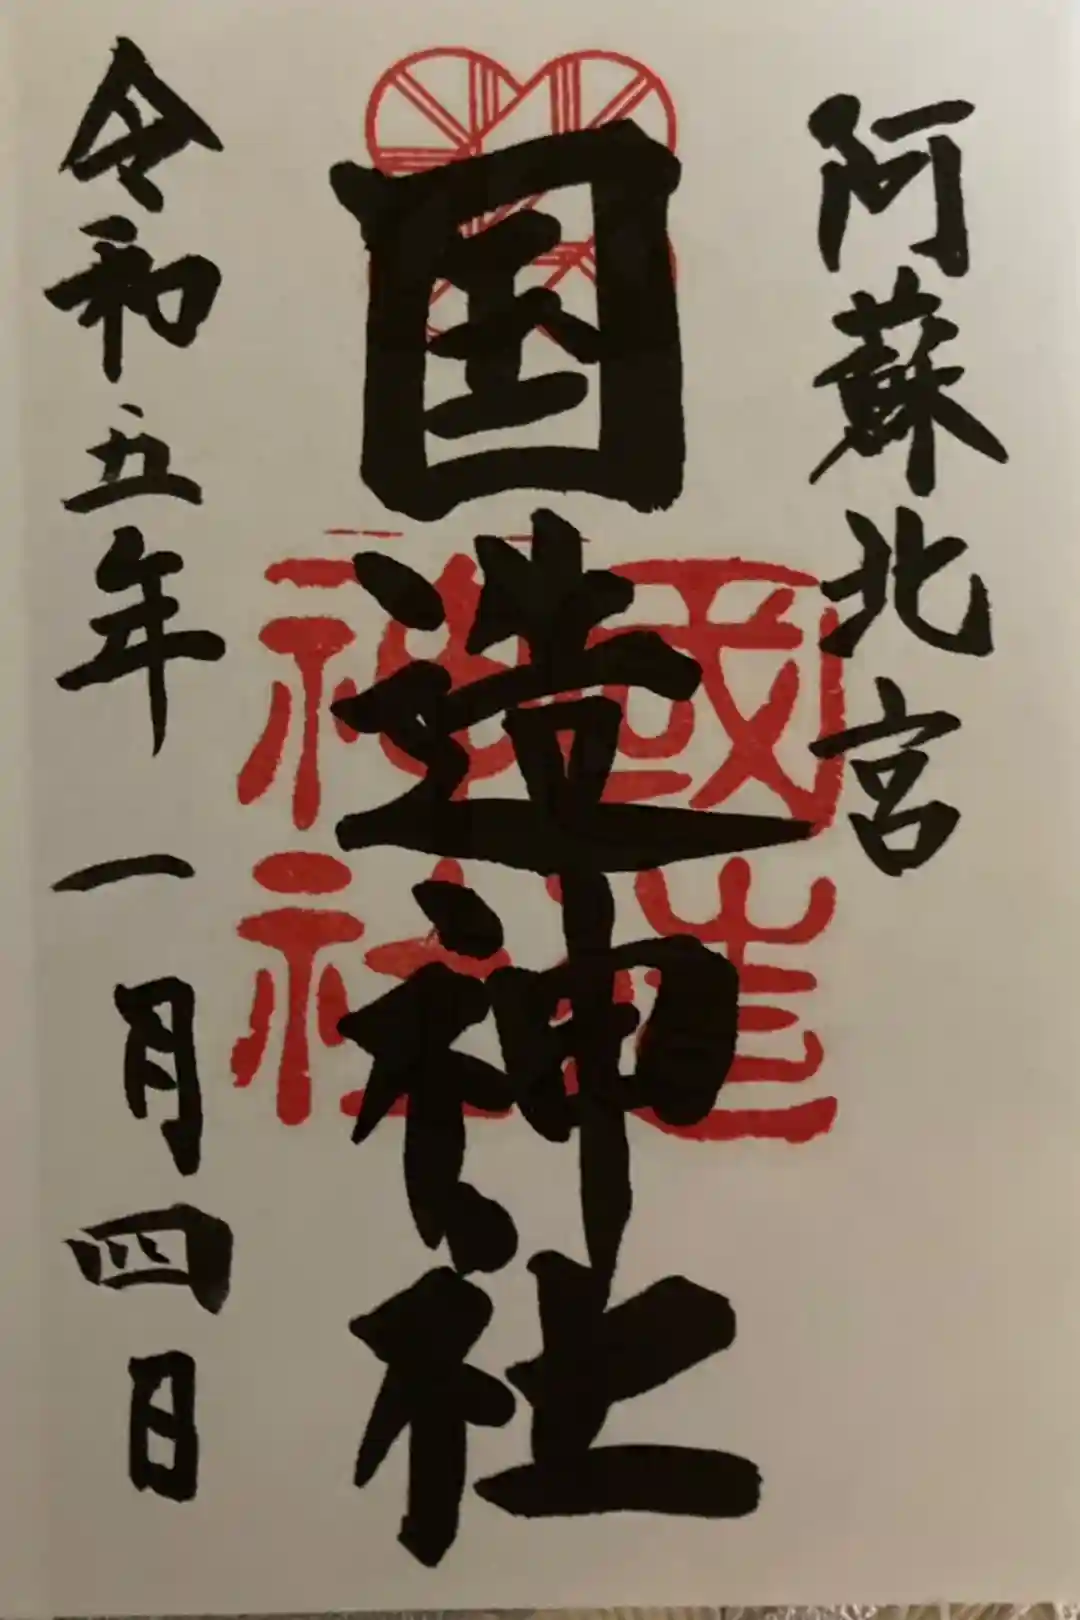 阿蘇北宮
国造神社
國造
神社
令和五年一月四日